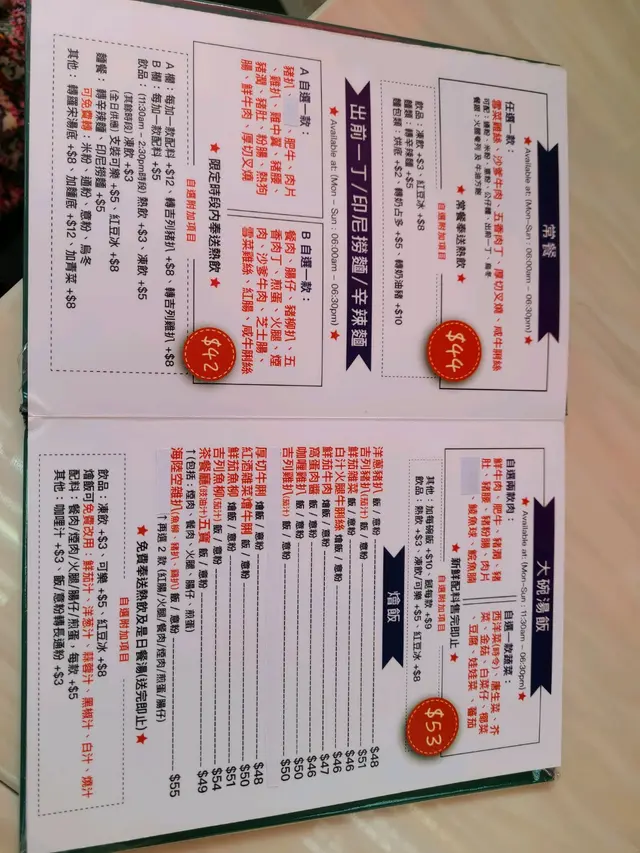 常餐
★ Available at: (Mon-Sun : 06:00am - 06:30pm) ★
任選一款：
雪菜雞絲、沙爹牛肉、五香肉丁、厚切叉燒、咸牛脷絲
可配：通粉、米粉、意粉、公仔麵、出前一丁、烏冬
餐跟：火腿奄列 及 牛油方飽
★ 常餐奉送熱飲 ★
$44
自選附加項目
飲品：凍飲 +$3、紅豆冰 +$8
麵類：轉辛辣麵 +$5
麵包類：烘底 +$2、轉奶占多 +$5、轉奶油豬 +$10
出前一丁/印尼撈麵/辛辣麵
★ Available at: (Mon - Sun : 06:00am - 06:30pm) ★
A 自選一款：
豬扒、 肥牛、肉片
、雞扒、雞中翼、豬腰、
豬潤、豬肚、粉腸、熱狗
腸、鮮牛肉、厚切叉燒
B 自選一款：
餐肉、腸仔、豬柳扒、五
香肉丁、煎蛋、火腿、煙
肉、沙爹牛肉、芝士腸、
雪菜雞絲、紅腸、咸牛脷絲
★ 限定時段內奉送熱飲 ★
$42
自選附加項目
A 欄：每加一款配料 +$12、轉吉列豬扒 +$8、轉吉列雞扒 +$8
B 欄：每加一款配料 +$5
飲品：(11:30am - 2:30pm時段) 熱飲 +$3、凍飲 +$5
(其餘時段) 凍飲 +$3
(全日供應) 支裝可樂 +$5、紅豆冰 +$8
麵餐：轉辛辣麵、印尼撈麵 +$5
可免費轉：米粉、通粉、意粉、烏冬
其他：轉羅宋湯底 +$8、加麵底 +$12、加青菜 +$8
大碗湯飯
★ Available at: (Mon-Sun : 11:30am - 06:30pm) ★
自選兩款肉：
鮮牛肉、肥牛、豬潤、豬
肚、豬腰、豬粉腸、肉片
、鯪魚球、鯇魚腩
自選一款蔬菜：
西洋菜(時令)、唐生菜、芥
菜、金菇、白菜仔、椰菜
、豆腐、娃娃菜 、番茄
★ 新鮮配料售完即止 ★
$53
自選附加項目
其他：加每碗飯 +$10、餸每款 +$9
飲品：熱飲 +$3、凍飲/可樂 +$5、紅豆冰 +$8
燴飯
洋蔥豬扒 飯 / 意粉 $48
吉列豬扒(茄汁) 飯 / 意粉 $51
鮮茄雜菜 飯 / 意粉 $46
白汁火腿牛脷絲 飯 / 意粉 $46
鮮茄牛肉 燴飯 / 意粉 $47
窩蛋肉醬 飯 / 意粉 $46
咖喱雞扒 飯 / 意粉 $50
吉列雞扒(茄汁) 飯 / 意粉 $50
厚切牛脷 燴飯 / 意粉 $48
紅酒雜菜燴牛脷 飯 / 意粉 $50
鮮茄魚柳 燴飯 / 意粉 $51
吉列魚柳(茄汁) 飯 / 意粉 $54
茶餐廳(豉油汁)五寶 飯 / 意粉 $49
↑(包括：煙肉、火腿、餐肉、腸仔、煎蛋)
海陸空雜扒(魚柳、豬扒、雞扒) 飯 / 意粉 $55
↑再選 2 款 (紅腸/火腿/餐肉/煙肉/煎蛋/腸仔)
★ 免費奉送熱飲及是日餐湯(送完即止) ★
自選附加項目
飲品：凍飲 +$3、可樂 +$5、紅豆冰 +$8
燴飯可免費改用：鮮茄汁、洋蔥汁、蒜蓉汁、黑椒汁、白汁、燒汁
配料：餐肉/煙肉/火腿/腸仔/煎蛋，每款 +$5
其他：咖喱汁 +$3、飯/意粉轉長通粉 +$3